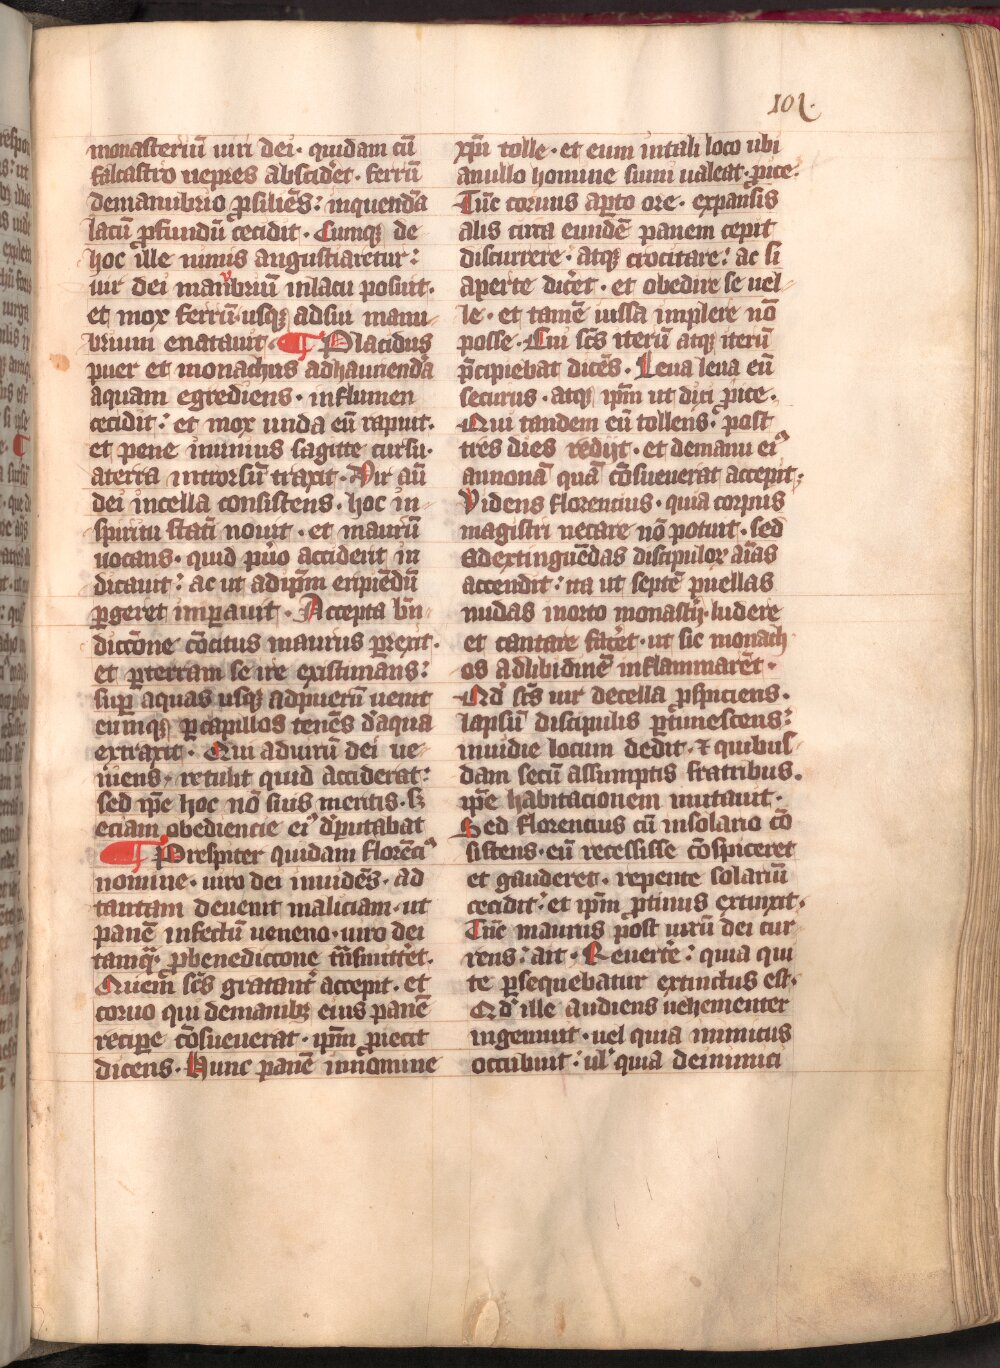 101.
monasteriū uiri dei · quidam cū
falcastro uepres abscideret · ferrū
demanubrio ꝓsiliēs : inquendā
lacū ꝓfundū cecidit · Cumqꝫ de
hoc ille nimis angustiaretur :
uir dei manubriū inlacu posuit ·
et mox ferrū usqꝫ adsui manu
brium enatauit · ¶ Placidus
puer et monachus adhauriendā
aquam egrediens · influmen
cecidit : et mox unda eū rapuit ·
et pene inunius sagitte cursu ·
aterra introrsū traxit · Vir aū
dei incella consistens · hoc in
spiritu statī nouit · et maurū
uocans · quid puero acciderit in
dicauit : ac ut adip̄m eripiēdū
ꝑgeret imꝑauit · Accepta bn̄
diccōne cōcitus maurus ꝑrexit ·
et ꝑterram se ire existimans :
suꝑ aquas usqꝫ adpuerū uenit
eumqꝫ ꝑcapillos tenēs deaqua
extraxit · Qui aduirū dei ue
niens · retulit quid acciderat :
sed ip̄e hoc nō suis meritis · sꝫ
eciam obediencie eiꝰ deputabat
¶ Presbiter quidam florēciꝰ
nomine · uiro dei inuidēs · ad
tantam deuenit maliciam · ut
panē infectū ueneno · uiro dei
tamqͣ ꝓbenediccone trāsmitteret ·
Quem sc̄s gratanter accepit · et
coruo qui demanibꝫ eius panē
recipere cōsueuerat · ip̄m ꝓiecit
dicens · Hunc panē innomine
xp̄i tolle · et eum intali loco ubi
anullo homine sumi ualeat · ꝓice :
Tūc coruus aꝑto ore · expansis
alis circa eundē panem cepit
discurrere · atqꝫ crocitare : ac si
aperte diceret · et obedire se uel
le · et tamē iussa implere nō
posse · Cui sc̄s iterū atqꝫ iterū
p̄cipiebat dicēs · Leua leua eū
securus · atqꝫ ip̄m ut dixi ꝓice ·
Qui tandem eū tollens · post
tres dies redijt · et demanu eiꝰ
annonā quā cōsueuerat accepit ;
Videns florencius · quia corpus
magistri necare nō potuit · sed
adextinguēdas discipulorꝫ aīas
accendit : ita ut septē puellas
nudas inorto monasterij · ludere
et cantare faceret · ut sic monach
os adlibidinē inflammarēt ·
Qd̓ sc̄s uir decella ꝓspiciens ·
lapsū discipulis ꝑtimescens :
inuidie locum dedit · ⁊ quibus
dam secū assumptis fratribus ·
ip̄e habitacionem mutauit ·
Sed florencius cū insolario cō
sistens · eū recessisse cōspiceret
et gauderet · repente solariū
cecidit : et ip̄m ꝓtinus extinxit ·
Tūc maurus post uirū dei cur
rens : ait · Reuertere : quia qui
te ꝑsequebatur extinctus est ·
Qd̓ ille audiens uehementer
ingemuit · uel quia inimicus
occubuit : ul̓ quia deinimici